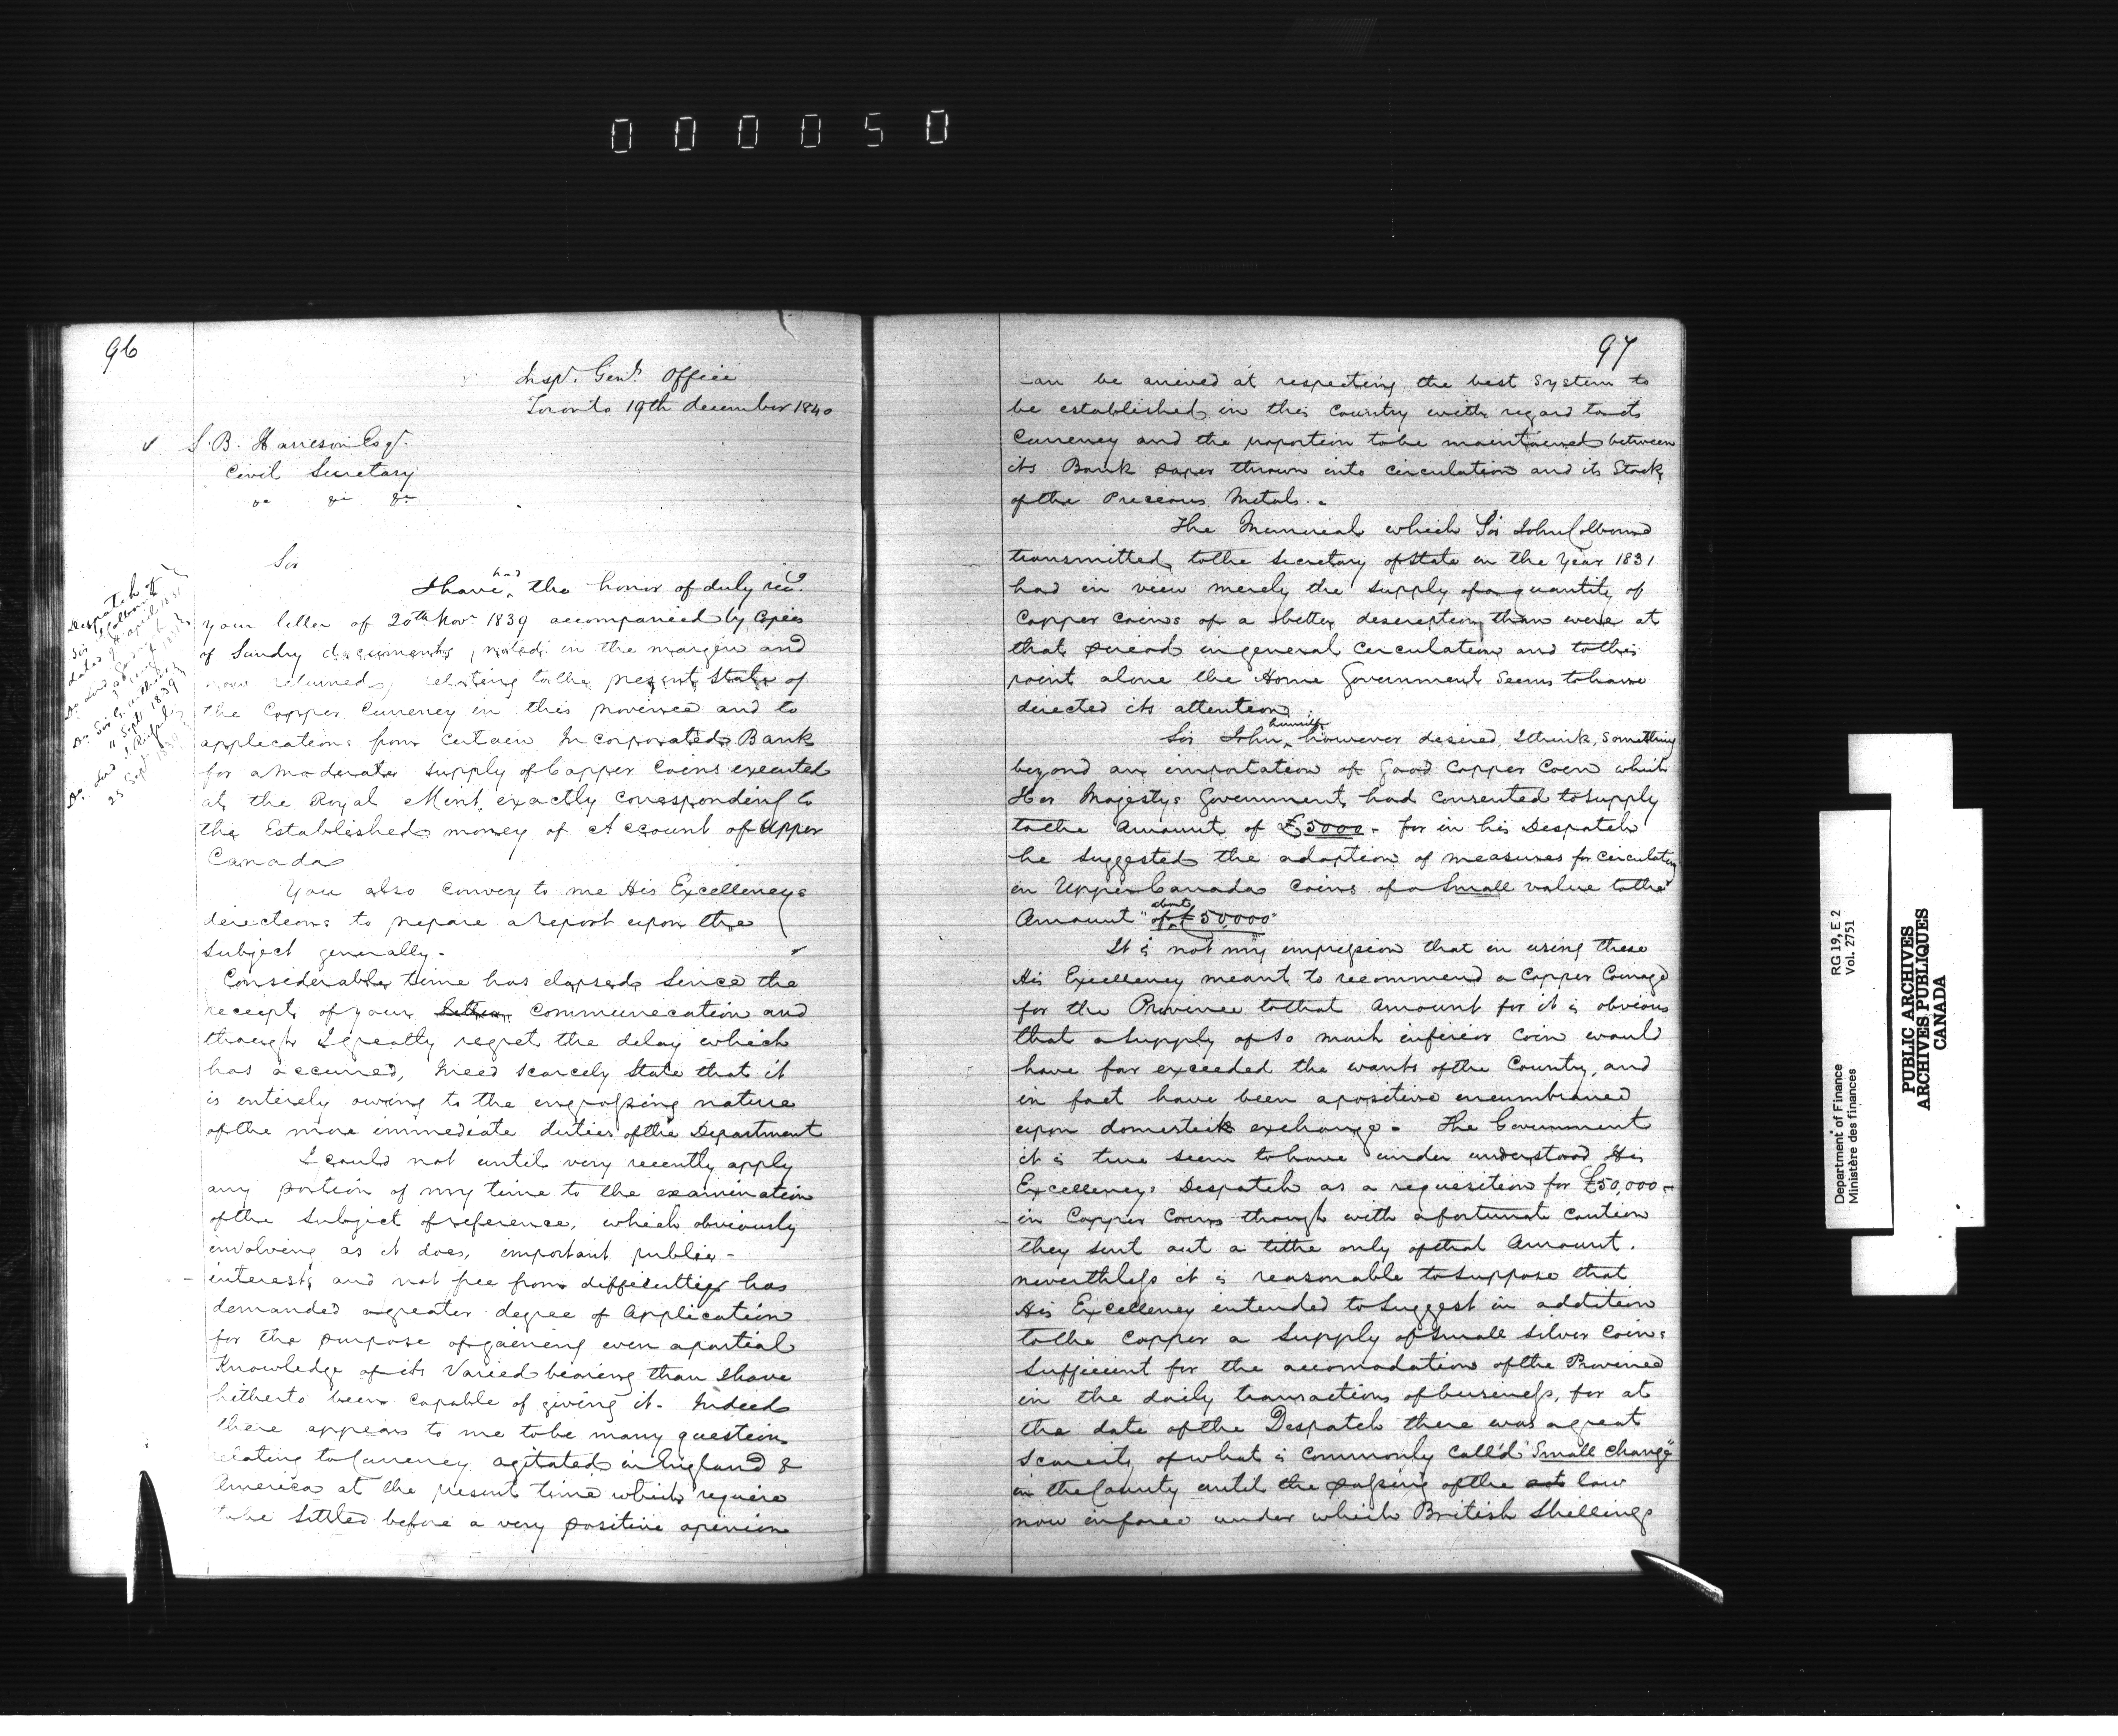 000050
96
Insp.r Gen.ls Office
Toronto 19th december 1840
S. B. Harrison Esq.r
Civil Secretary
&c &c &c
Despatch of
Sir J Colborne
dated 9 April 1831
Do Sir G. Arthur
11 Sept 1839
25 Sept 1839
Sir
I have had the honor of duly rec.d
your letter of 20th Nov.r 1839 accompanied by Copies
of Sundry documents, noted in the margin and
now returned, relating to the present State of
the Copper Currency in this province and to
applications from Certain Incorporated Bank
for a moderate supply of Copper Coins executed
at the Royal Mint exactly corresponding to
the Established money of Account of Upper
Canada
You also convey to me His Excellencys
directions to prepare a Report upon the
subject generally.
Considerable time has elapsed Since the
receipt of your letter communication and
though I greatly regret the delay which
has occurred, I need scarcely state that it
is entirely owing to the engrossing nature
of the more immediate duties of the Department
I could not until very recently apply
any portion of my time to the examination
of the subject of reference, which obviously
involving as it does, important public -
interests and not free from difficulties has
demanded a greater degree of Application
for the purpose of gaining even a partial
Knowledge of its Varied bearing than I have
hitherto been capable of giving it. Indeed
there appears to me to be many question
relating to Currency agitated in England &
America at the present time which require
to be Settled before a very positive opinion
97
can be arrived at respecting the best System to
be established in this Country with regard to its
Currency and the proportion to be maintained between
its Bank paper thrown into circulation and its Stock
of the Precious Metals.
The Memorial which Sir John Colborne
transmitted to the Secretary of State in the Year 1831
had in view merely the supply of a quantity of
Copper Coins of a better description than were at
that period in general circulation and to this
point alone the Home Government Seems to have
directed its attention.
Sir John himself however desired, I think, Something
beyond an importation of good Copper Coin which
Her Majestys Government had Consented to supply
to the Amount of £5000 - for in his Despatch
he suggested the adoption of measures for circulating
in Upper Canada Coins of a Small value to the
Amount "of about £50,000"
It is not my impression that in using these
His Excellency meant to recommend a Copper Coinage
for the Province to that Amount for it is obvious
that a supply of so much inferior Coin would
have far exceeded the wants of the Country, and
in fact have been a positive encumbrance
upon domestick exchange. The Government
it is true seem to have under understood His
Excellencys Despatch as a requisition for £50,000 -
in Copper Coins though with a fortunate caution
they sent out a tithe only of that Amount.
nevertheless it is reasonable to suppose that
His Excellency intended to Suggest in addition
to the Copper a Supply of Small Silver Coins
Sufficient for the accomodation of the Province
in the daily transactions of business, for at
the date of the Despatch there was a great
Scarcity of what is Commonly Call'd "Small Change"
in the County until the passing of the act law
now in force under which British Shillings
RG 19, E 2
Vol. 2751
Department of Finance
Ministère des finances
PUBLIC ARCHIVES
ARCHIVES PUBLIQUES
CANADA